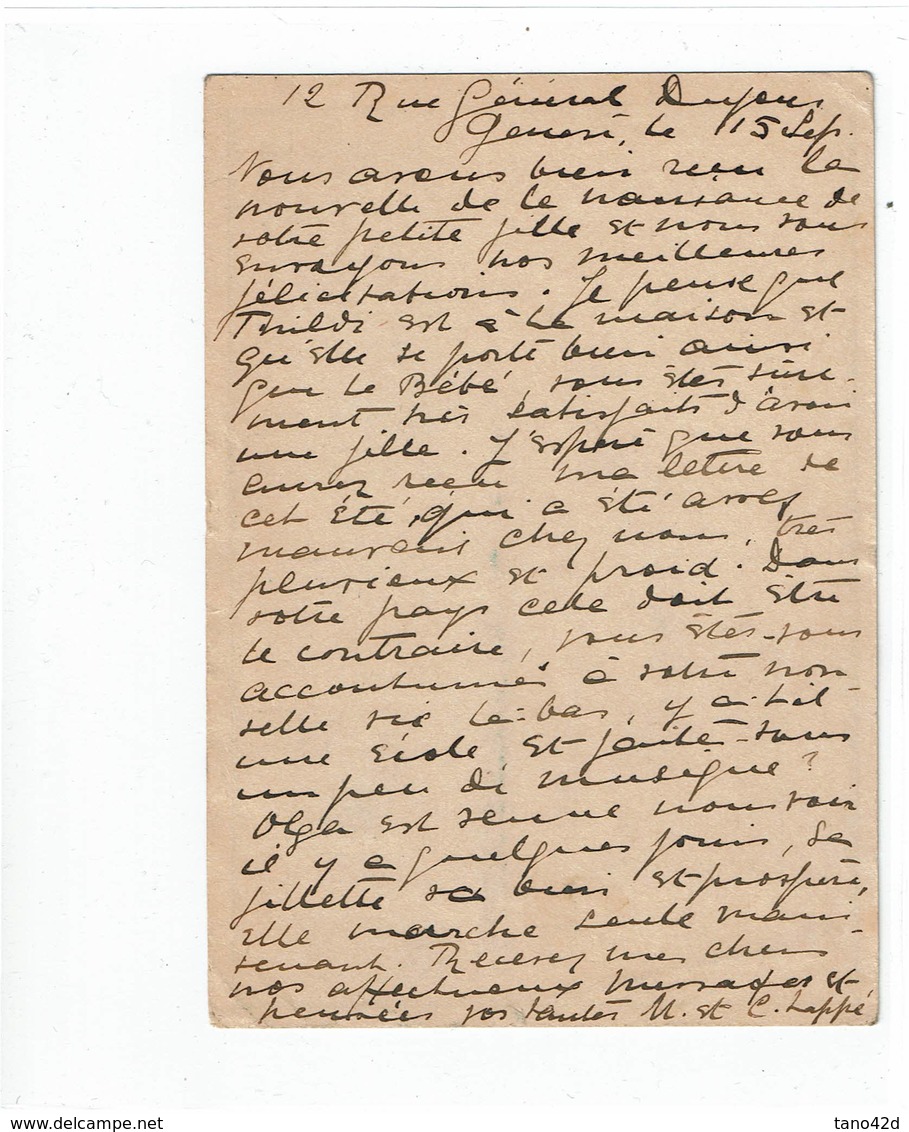 12 Rue Général Dufour
Genève, le 15 Sep.
Nous avons bien reçu la
nouvelle de la naissance de
votre petite fille et nous vous
envoyons nos meilleures
félicitations. Je pense que
Thildi est à la maison et
qu'elle se porte bien ainsi
que le Bébé, vous êtes sûre-
ment très satisfaits d'avoir
une fille. J'espère que vous
aurez reçu ma lettre de
cet été, qui a été assez
mauvais chez nous, très
pluvieux et froid. Dans
votre pays cela doit être
le contraire, vous êtes-vous
accoutumés à votre nou-
velle vie là-bas, y a-t-il
une école et faites-vous
un peu de musique?
Olga est venue nous voir
il y a quelques jours, sa
fillette va bien et prospère,
elle marche seule main-
tenant. Recevez mes chers
nos affectueux messages et
pensées vos tantes M. et C. Lappé
delcampe.net
tano42d